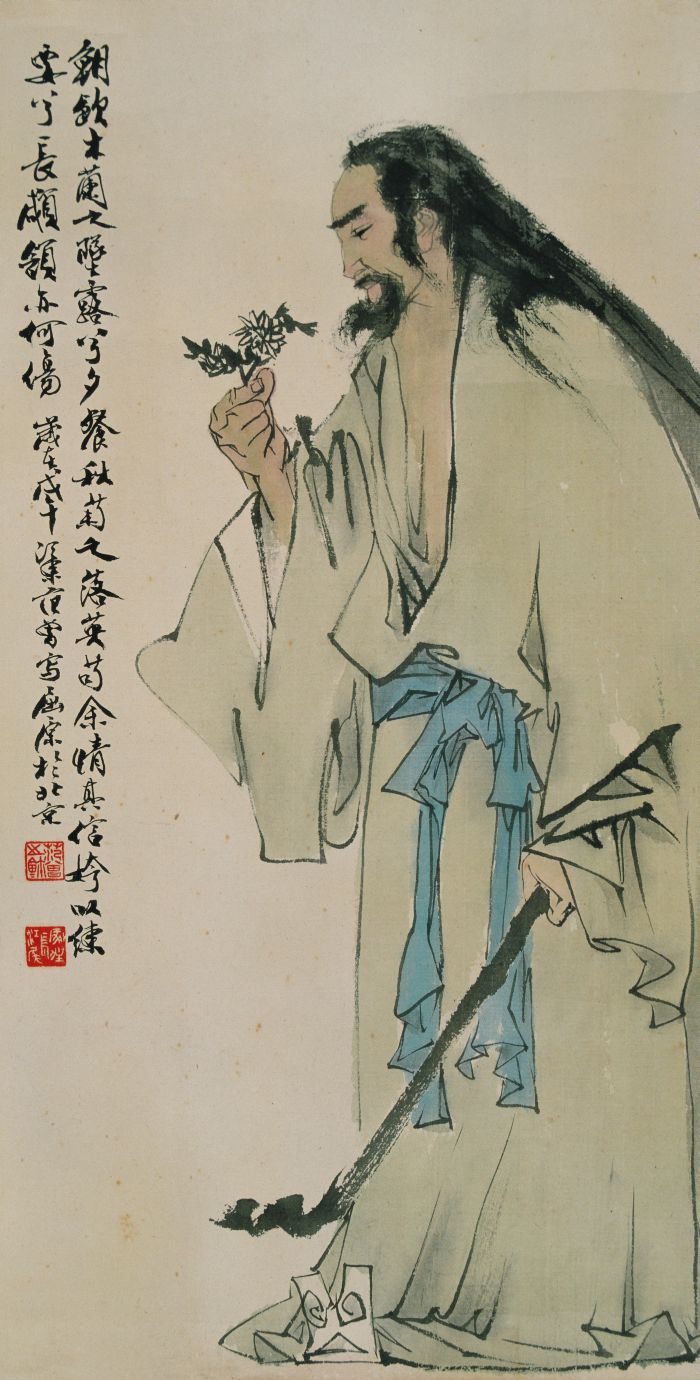 朝飲木蘭之墜露兮夕餐秋菊之落英苟余情其信姱以練
要兮長顑頷亦何傷 歲在戊午范曾寫屈原於北京